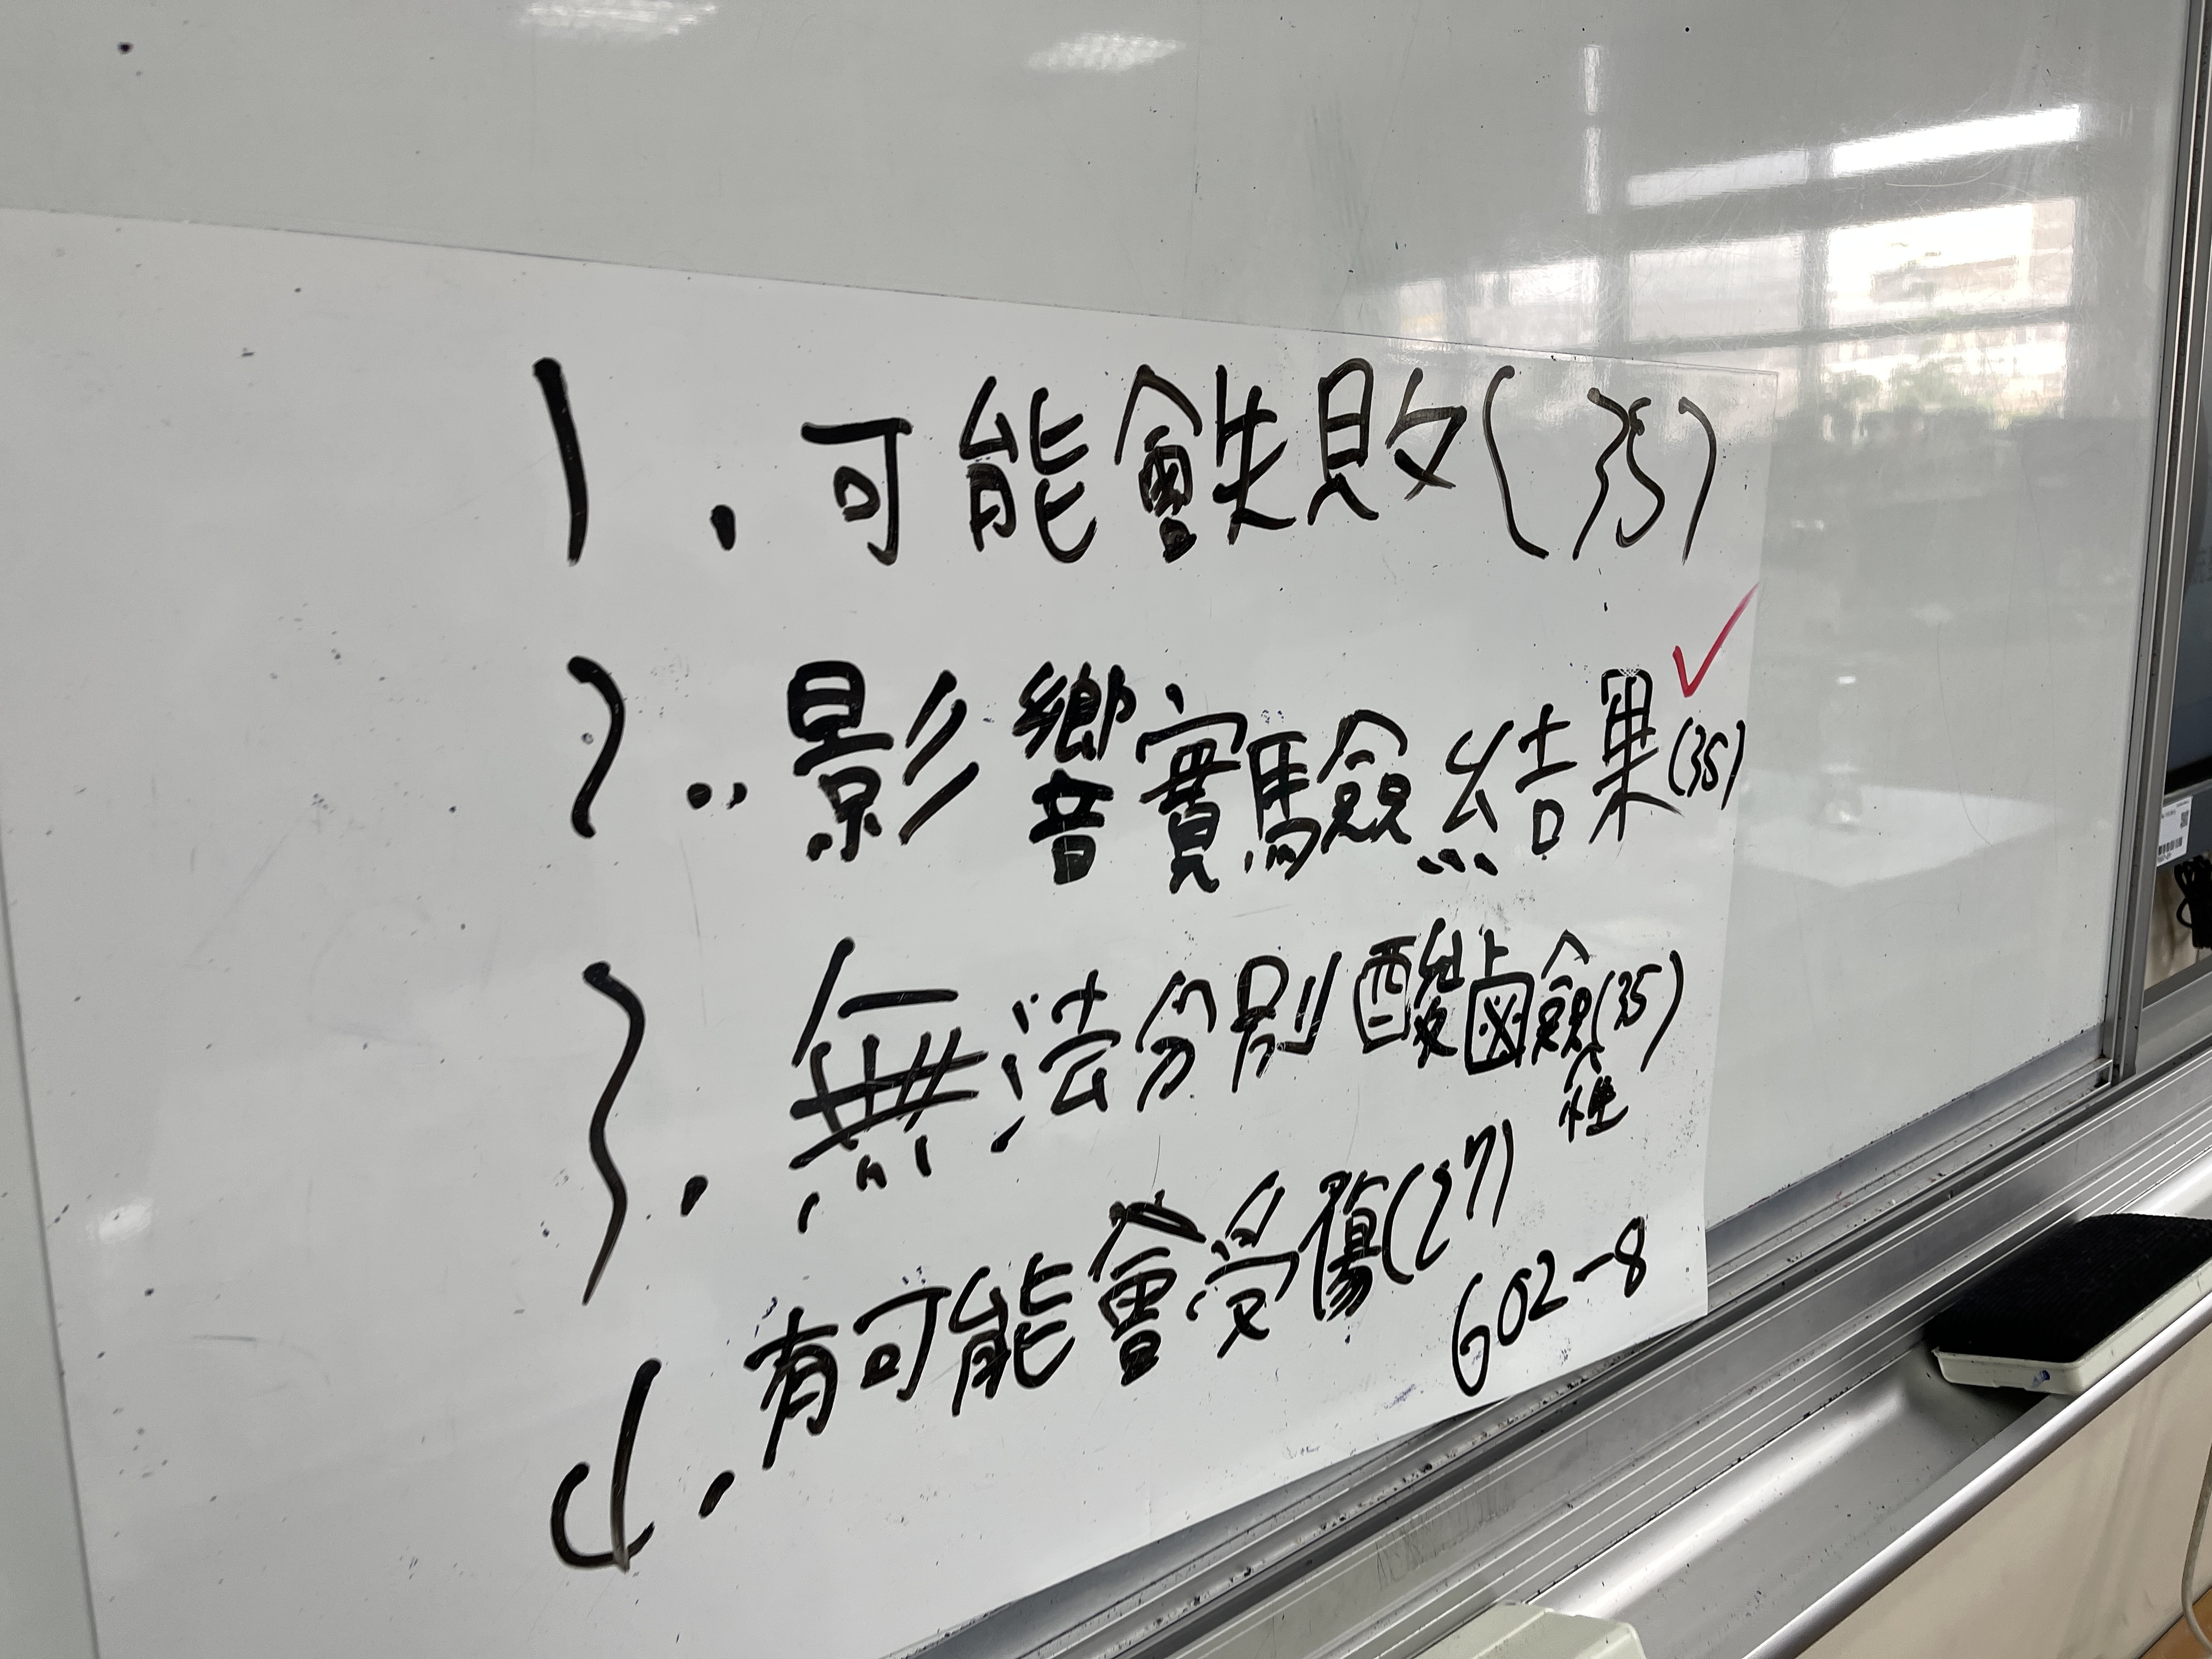 1.可能會失敗(35)
2..影響實驗結果(35)
3.無法分別酸鹼(35)
種
4.有可能會受傷(27)
602-8